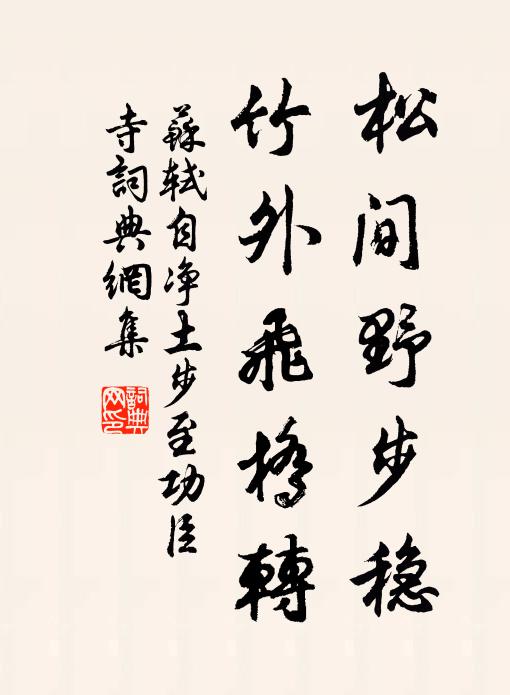 松间野步稳
竹外飛橋轉
蘇軾自净土步至功臣
寺詞典網集
詞典
网印